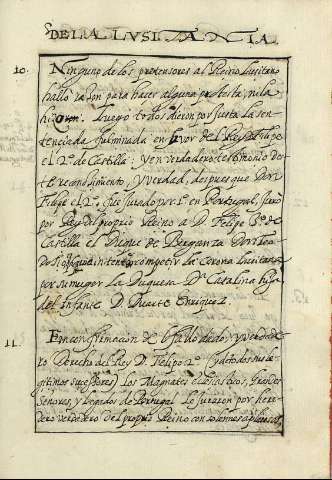 DE LA LUSITANIA.
10. Ninguno de los pretensores al Reino Lusitano
hallò razon para hazer alguna protesta, ni la
hizo. Luego todos dieron por justa la sen-
tencia da fulminada en favor del Rey Felipe
el 2º de Castilla: Y en verdadero testimonio des-
te reconosimento, y verdad, despues que Don
Felipe el 2º que jurado por 1º en Portugal, juro
por Rey del proprio Reino a D. Felipe 3º de
Castilla el Duque de Berganza Don Teo-
dosio, que intento competir la Corona Lusitana
por su muger La Duquesa Dª Catalina hija
del Infante D. Duarte Enriquez.
11. En confirmacion de lo fallecido, y verdade-
ro Derecho del Rey D. Felipe 2º (y de todos sus le-
gitimos sucesores) Los Magnates eclesiasticos, Grandes
Señores, y Legados de Portugal Lo juraron por here-
dero verdadero del proprio Reino con solemnes aplausos,